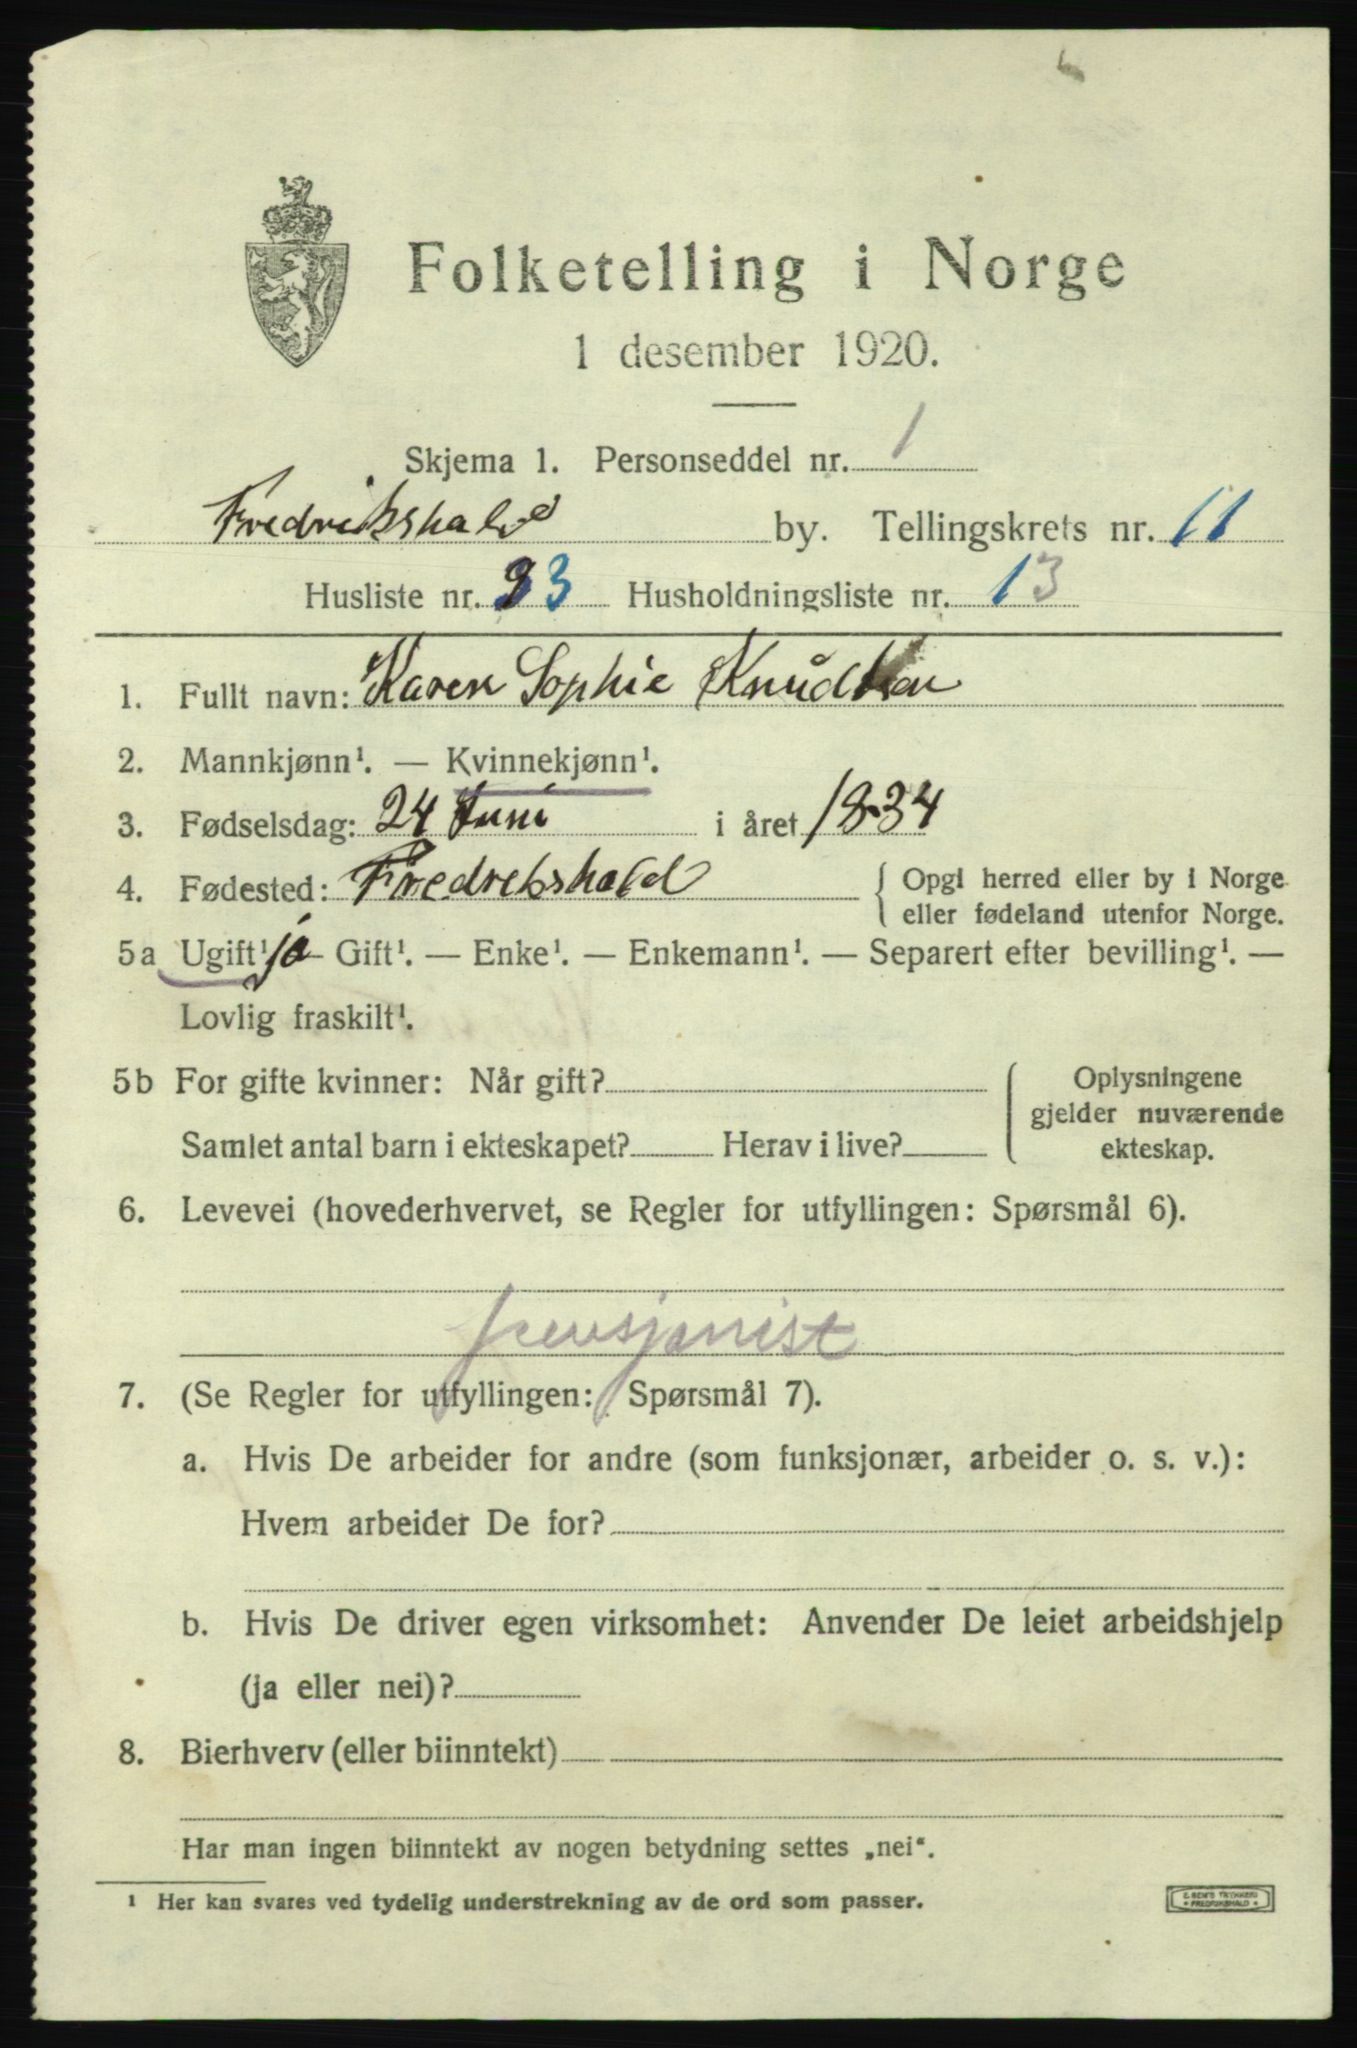 Folketelling i Norge
1 desember 1920.
Skjema 1. Personseddel nr. 1
Fredrikshald by. Tellingskrets nr. 11
Husliste nr. 33 Husholdningsliste nr. 13
1. Fullt navn: Karen Sophie Knudtsen
2. Mannkjønn¹. — Kvinnekjønn¹.
3. Fødselsdag: 24 Juni i året 1834
4. Fødested: Fredrikshald { Opgi herred eller by i Norge
eller fødeland utenfor Norge.
5a Ugift¹ ja — Gift¹. — Enke¹. — Enkemann¹. — Separert efter bevilling¹. —
Lovlig fraskilt¹.
5b For gifte kvinner: Når gift? { Oplysningene
gjelder nuværende
Samlet antal barn i ekteskapet? Herav i live? ekteskap.
6. Levevei (hovederhvervet, se Regler for utfyllingen: Spørsmål 6).
pensjonist
7. (Se Regler for utfyllingen: Spørsmål 7).
a. Hvis De arbeider for andre (som funksjonær, arbeider o. s. v.):
Hvem arbeider De for?
b. Hvis De driver egen virksomhet: Anvender De leiet arbeidshjelp
(ja eller nei)?
8. Bierhverv (eller biinntekt)
Har man ingen biinntekt av nogen betydning settes „nei“.
¹ Her kan svares ved tydelig understrekning av de ord som passer.
FREDRIKSHALD